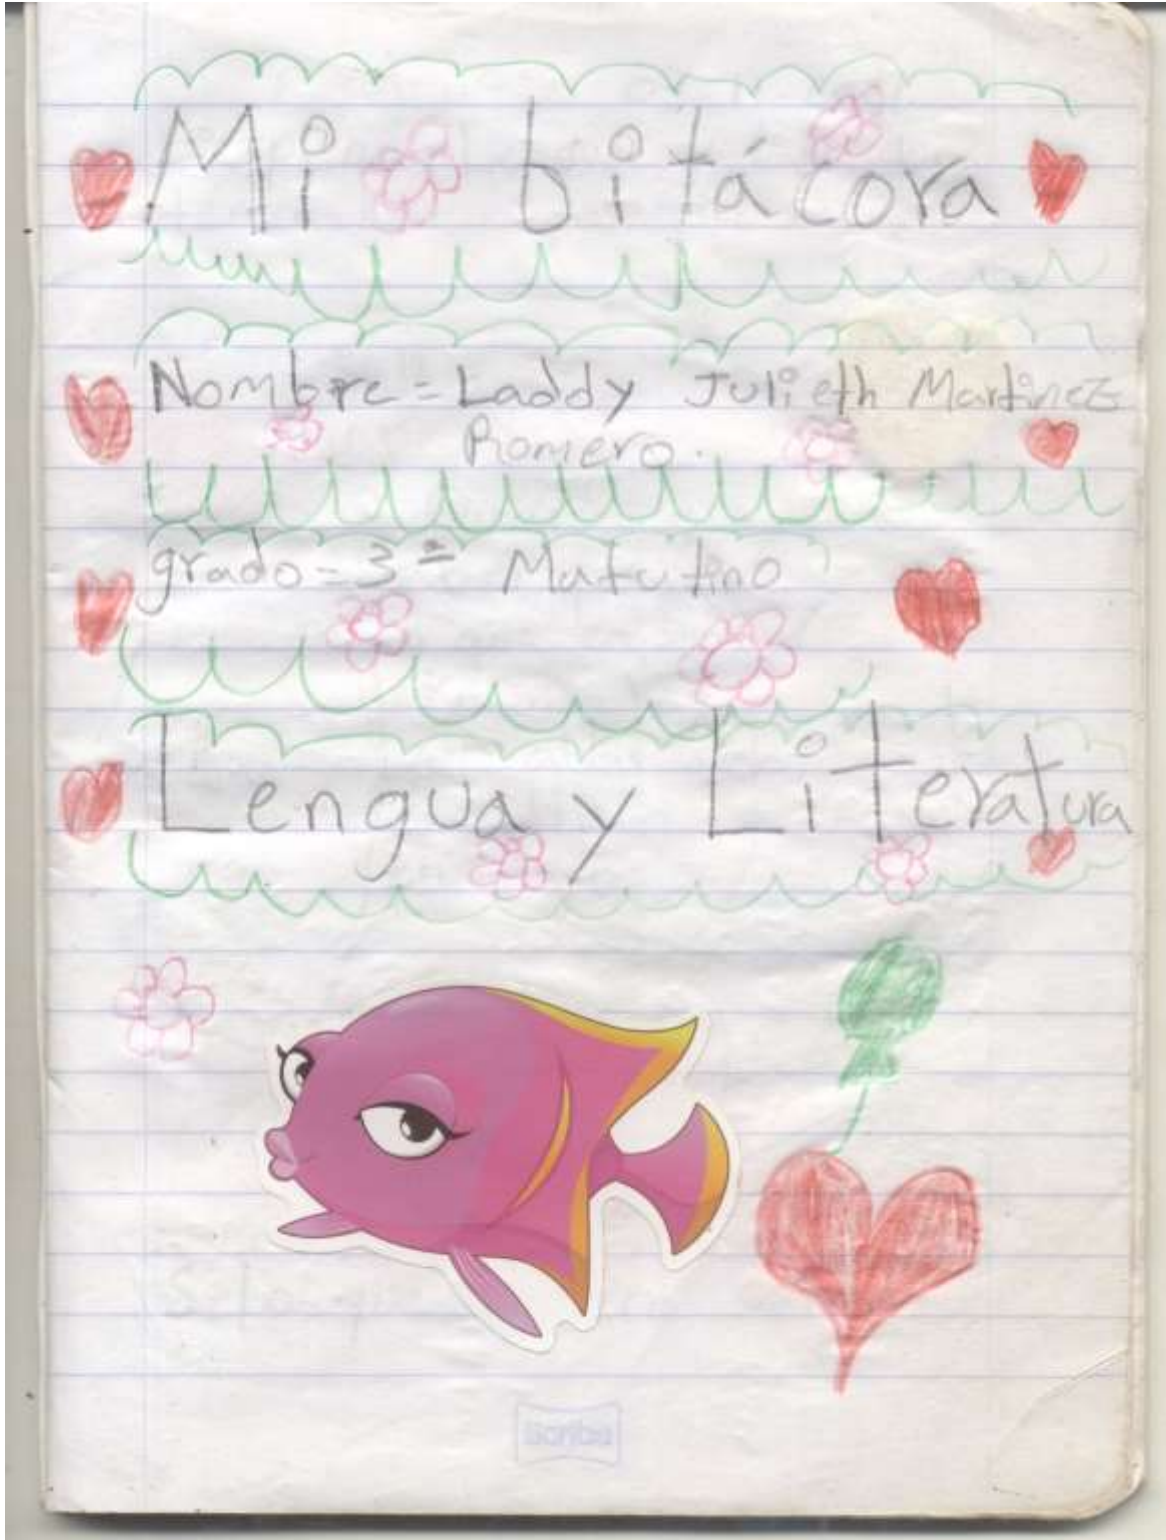 Mi bitácora
Nombre = Laddy Julieth Martinez
Romero.
grado - 3º Matutino
Lengua y Literatura
Scribe